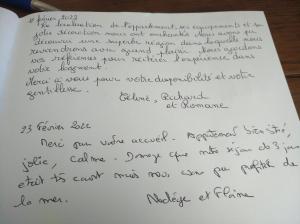 février 2022
La localisation de l'appartement, ses équipements et sa
jolie décoration nous ont enchantés. Nous avons pu
découvrir une superbe région dans laquelle nous
reviendrons avec grand plaisir. Nous gardons
vos références pour réitérer l'expérience dans
votre logement.
Merci à vous pour votre disponibilité et votre
gentillesse.
Céline, Richard
et Romane
23 Février 2022
Merci pour votre accueil. Appartement bien situé,
jolie, calme. Domage que notre séjour de 3 jours
était très court mais nous avons pu profiter de
la mer.
Nadège et